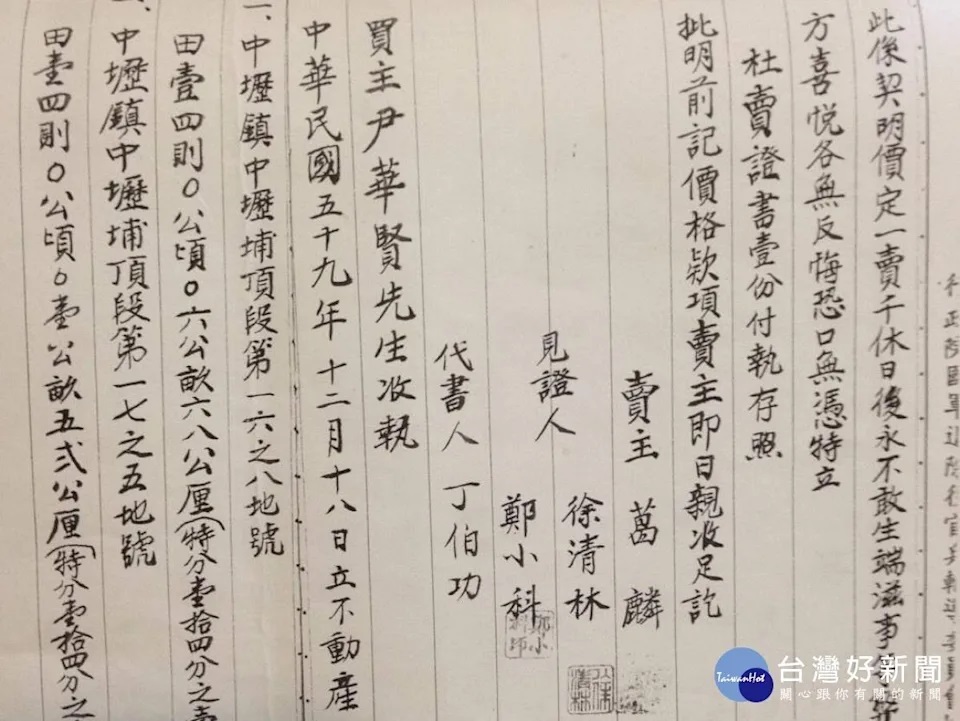 此係契明價定一賣千休日後永不敢生端滋事
方喜悅各無反悔恐口無憑特立
杜賣證書壹份付執存照
批明前記價格欵項賣主即日親收足訖
賣主 葛麟
見證人 徐清林
鄭小科
代書人 丁伯功
買主尹華賢先生收執
中華民國五十九年十二月十八日立不動產
一、中壢鎮中壢埔頂段第一六之八地號
田壹四則0公頃0六公畝六八公厘(特分壹拾四分之壹
一、中壢鎮中壢埔頂段第一七之五地號
田壹四則0公頃0壹公畝五弍公厘(特分壹拾四分之
TaiwanHot
台灣好新聞
關心跟你有關的新聞